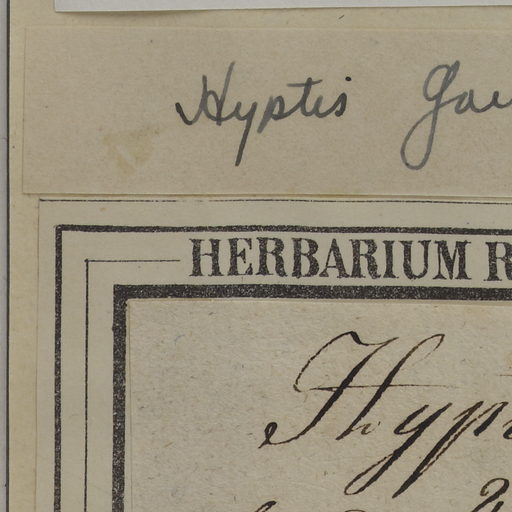 Hyptis Gau
HERBARIUM R
Hyp